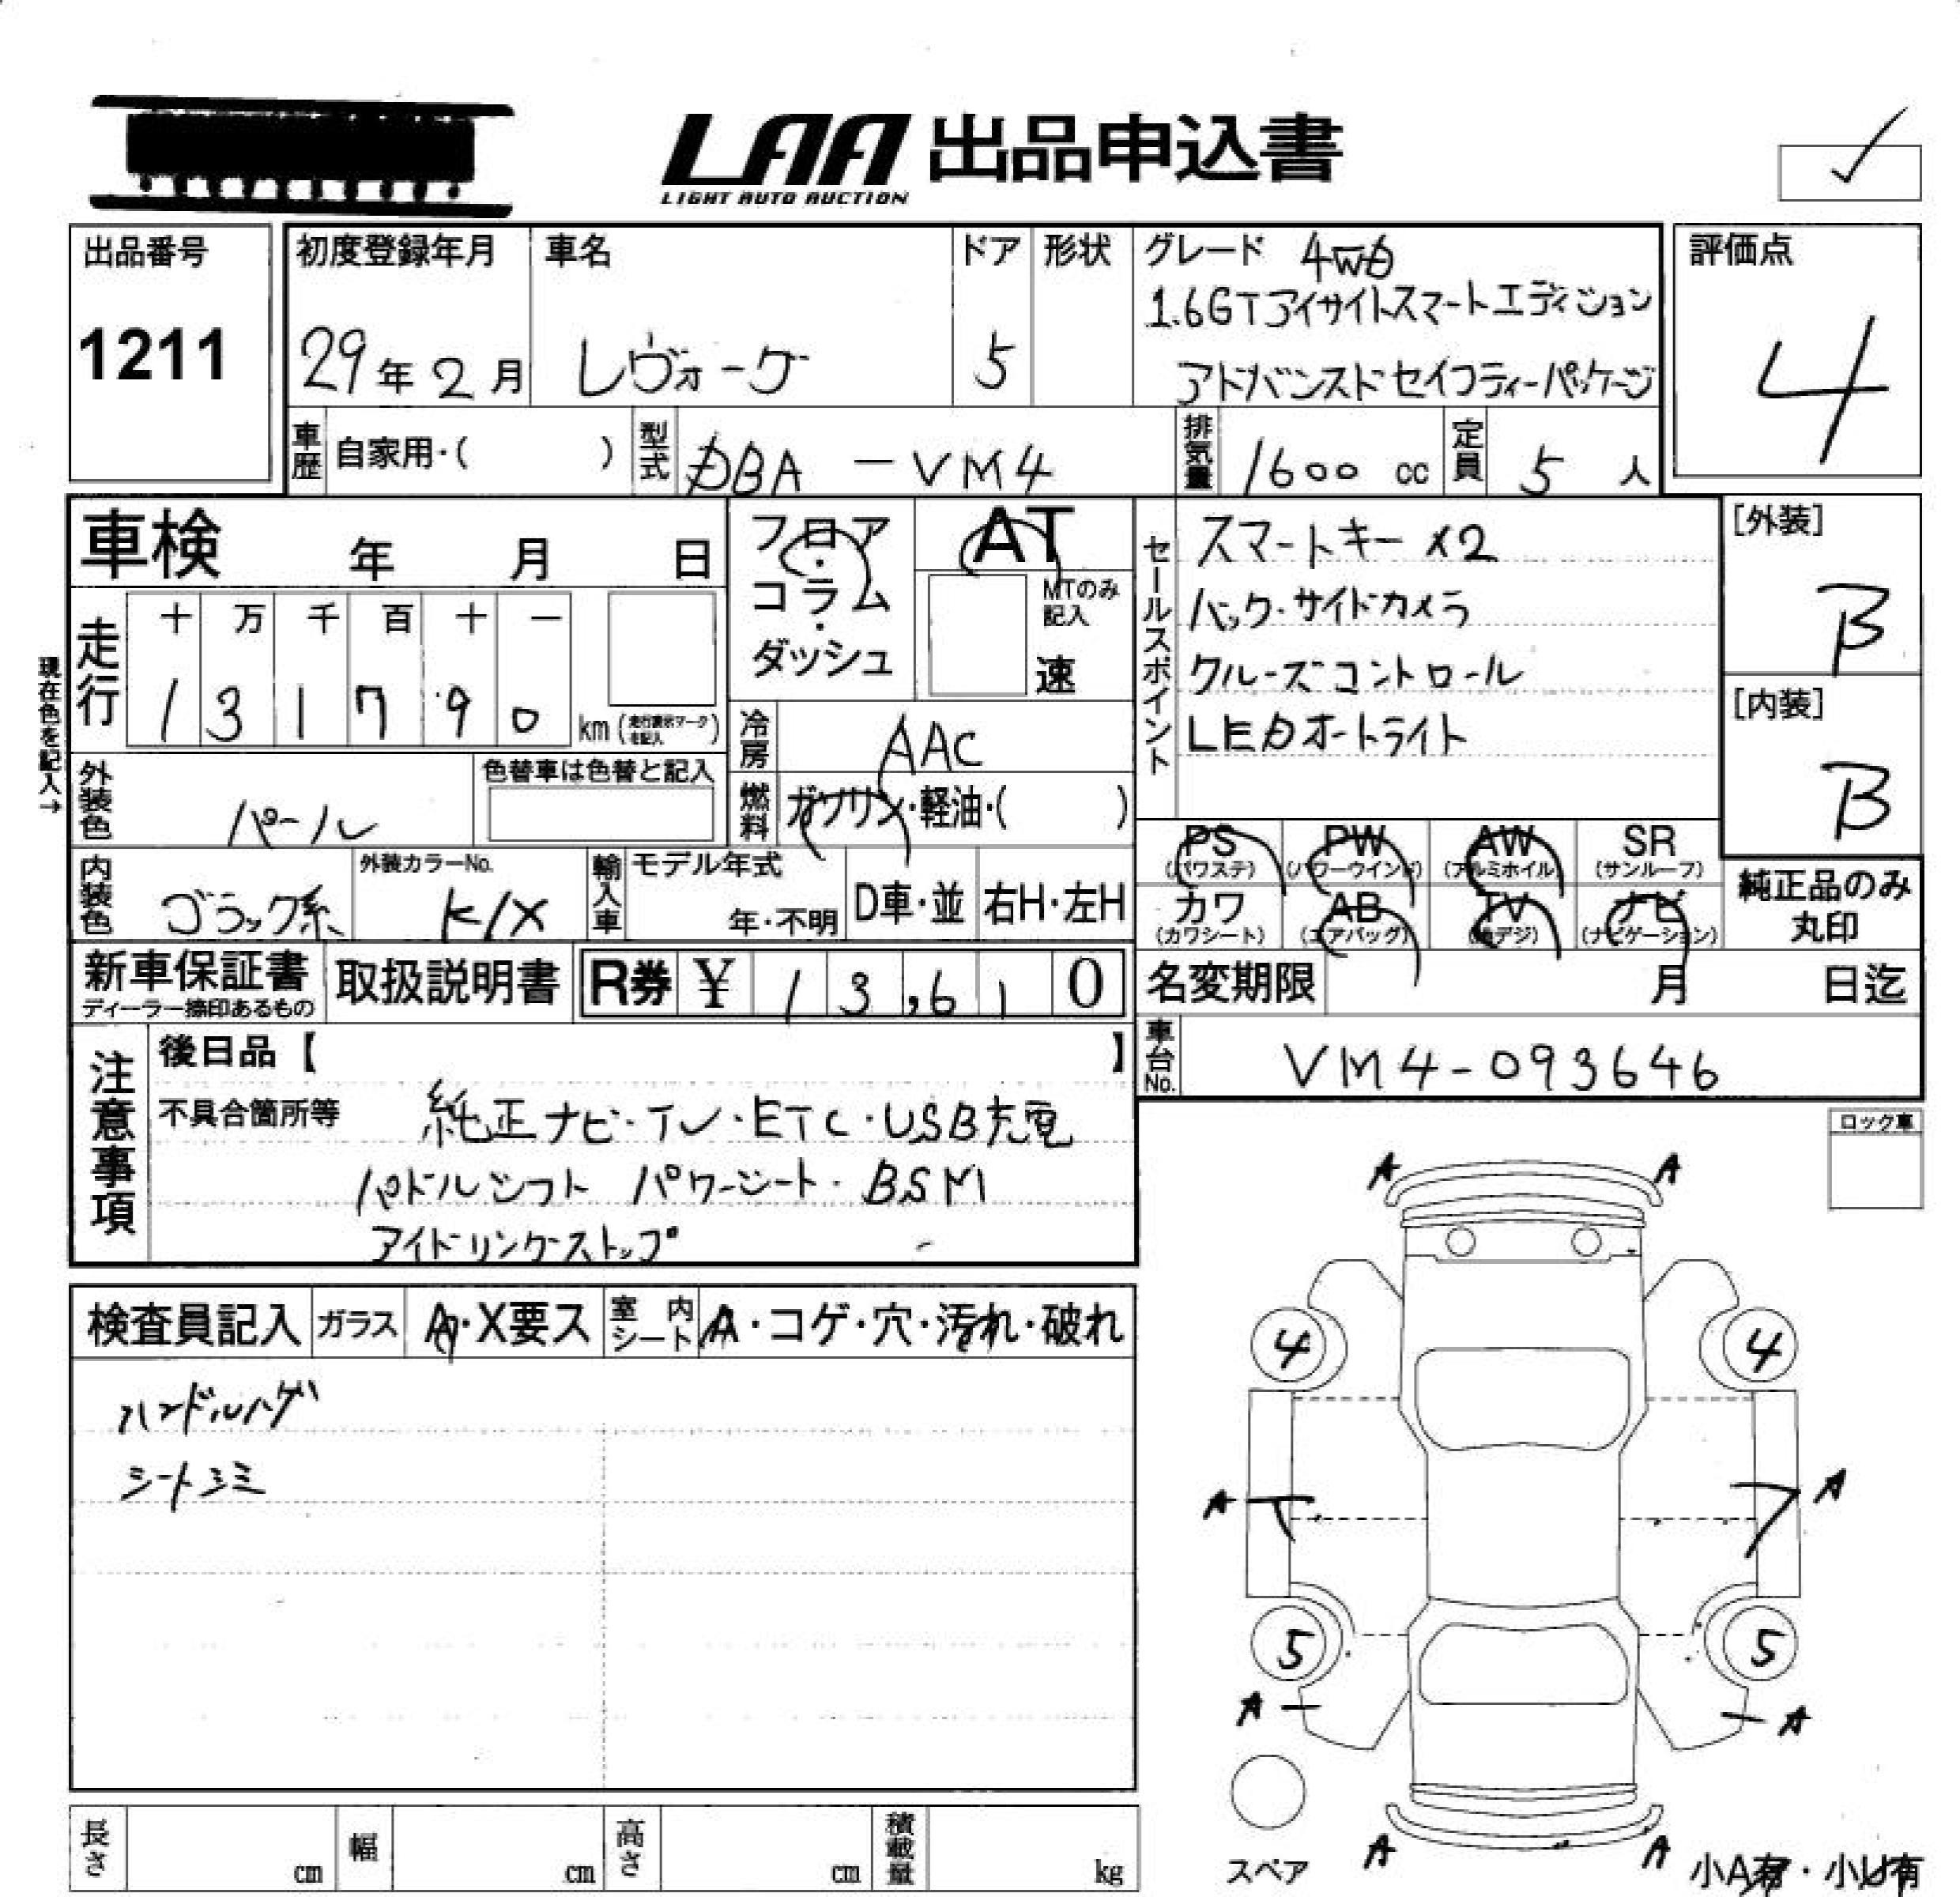 LAA 出品申込書
LIGHT AUTO AUCTION
出品番号
1211
初度登録年月
29年2月
車名
レヴォーグ
ドア
5
形状
グレード 4WD
1.6GTアイサイトスマートエディション
アドバンスドセイフティーパッケージ
評価点
4
車歴 自家用・( )
型式 DBA-VM4
排気量 1600 cc
定員 5 人
車検 年 月 日
フロア・コラム・ダッシュ
AT
MTのみ記入
速
セールスポイント
スマートキー×2
バック・サイドカメラ
クルーズコントロール
LEDオートライト
[外装]
B
[内装]
B
現在色を記入→
走行
十 万 千 百 十 一
1 3 1 7 9 0 km (走行表示マークを記入)
冷房 AAC
燃料 ガソリン・軽油・( )
外装色 パール
色替車は色替と記入
内装色 ブラック系
外装カラーNo.
K1X
輸入車
モデル年式
年・不明
D車・並
右H・左H
PS (パワステ)
PW (パワーウインド)
AW (アルミホイル)
SR (サンルーフ)
カワ (カワシート)
AB (エアバッグ)
TV (地デジ)
ナビ (ナビゲーション)
純正品のみ丸印
新車保証書
ディーラー捺印あるもの
取扱説明書
R券 ¥ 13,610
名変期限 月 日迄
車台No. VM4-093646
注意事項
後日品【 】
不具合箇所等
純正ナビ・TV・ETC・USB充電
パドルシフト パワーシート・BSM
アイドリングストップ
ロック車
検査員記入
ガラス A・X要ス
室内シート A・コゲ・穴・汚れ・破れ
ハンドルハゲ
シートシミ
A A
4 4
A A
5 5
A A
スペア
A A
小A有・小U有
長さ cm
幅 cm
高さ cm
積載量 kg